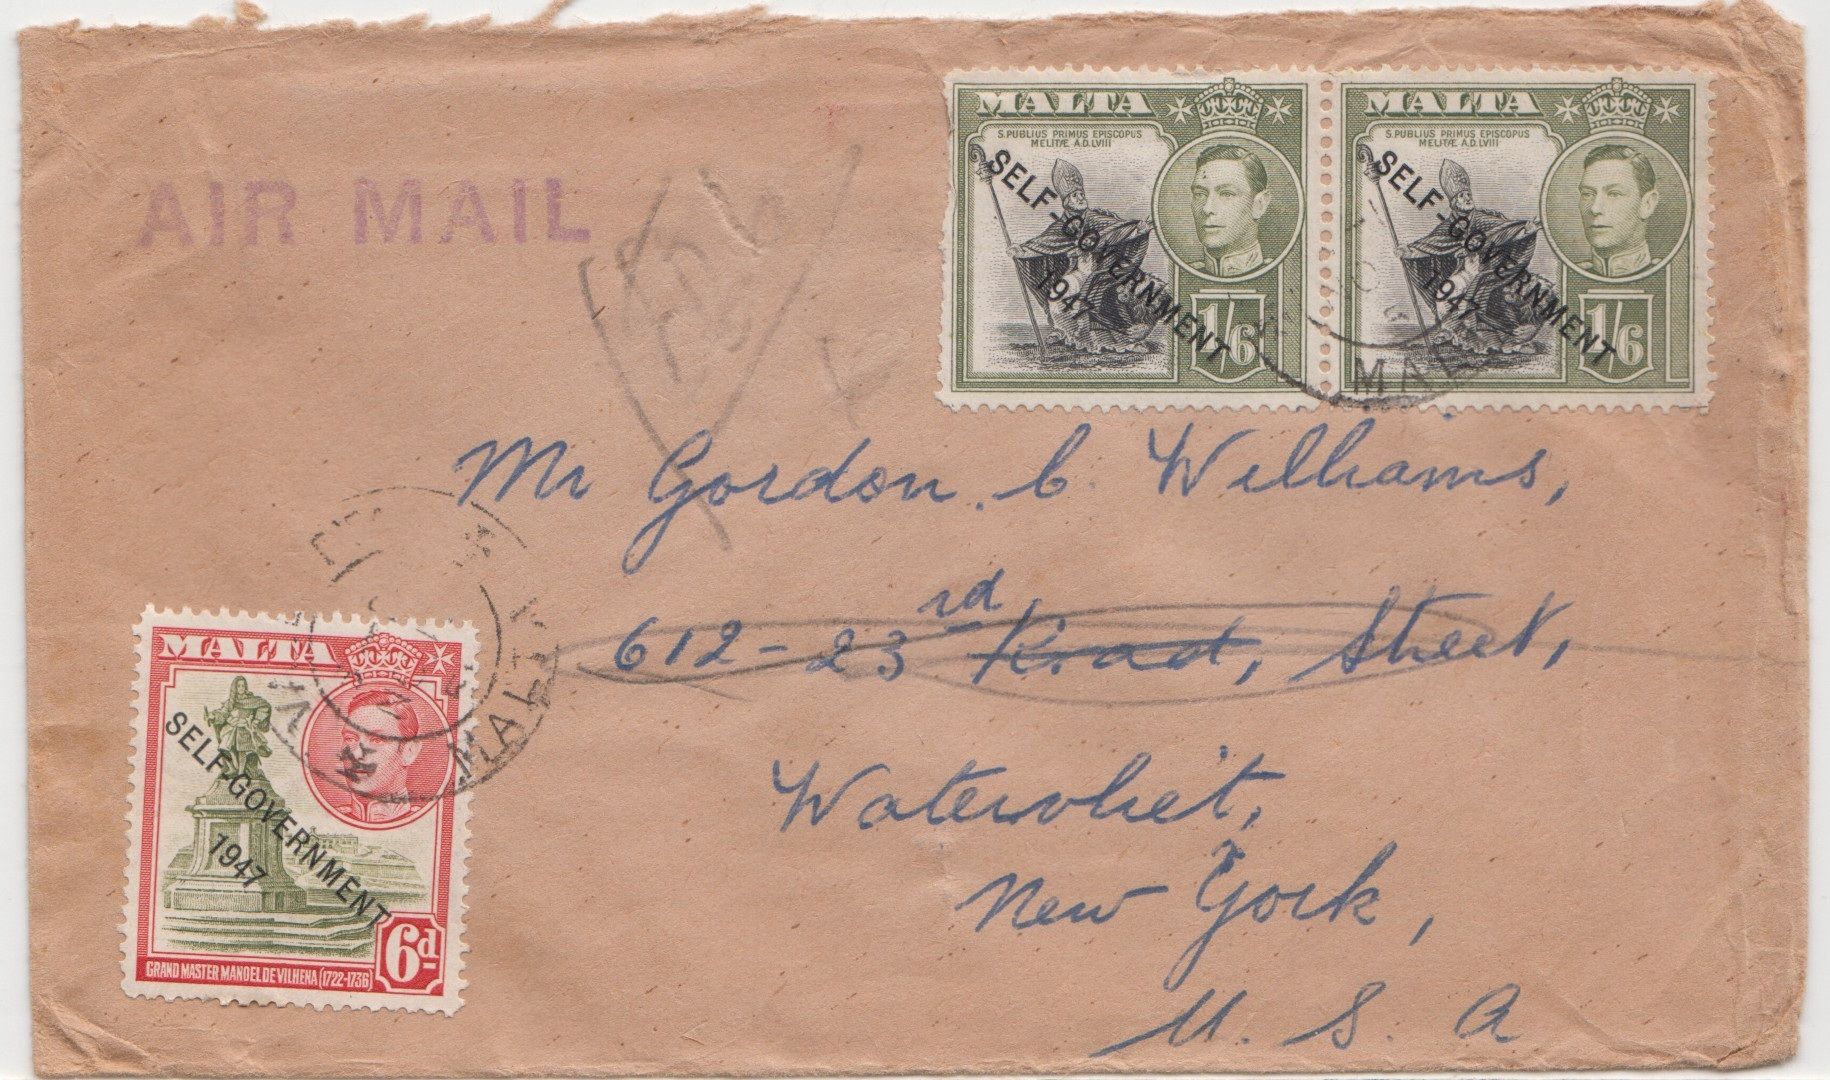 AIR MAIL
MALTA
S.PUBLIUS PRIMUS EPISCOPUS
MELITÆ A.D.LVIII
SELF-GOVERNMENT
1947
1/6
MALTA
S.PUBLIUS PRIMUS EPISCOPUS
MELITÆ A.D.LVIII
SELF-GOVERNMENT
1947
1/6
MAL
Mr Gordon. C. Williams,
612-23rd Road, Street,
Watervliet,
New York,
U. S. A
MALTA
MALTA
SELF-GOVERNMENT
1947
6d
GRAND MASTER MANOEL DE VILHENA (1722-1736)